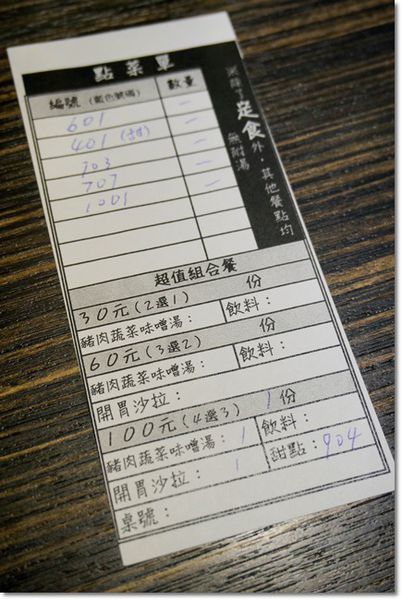 點菜單
編號(藍色號碼) 數量
601 一
401(甜) 一
703 一
707 一
1001 一
除了定食外，其他餐點均
無附湯
超值組合餐
30元(2選1) 份
豬肉蔬菜味噌湯： 飲料：
60元(3選2) 份
豬肉蔬菜味噌湯： 飲料：
開胃沙拉：
100元(4選3) 1份
豬肉蔬菜味噌湯：1 飲料：
開胃沙拉：1 甜點：904
桌號：